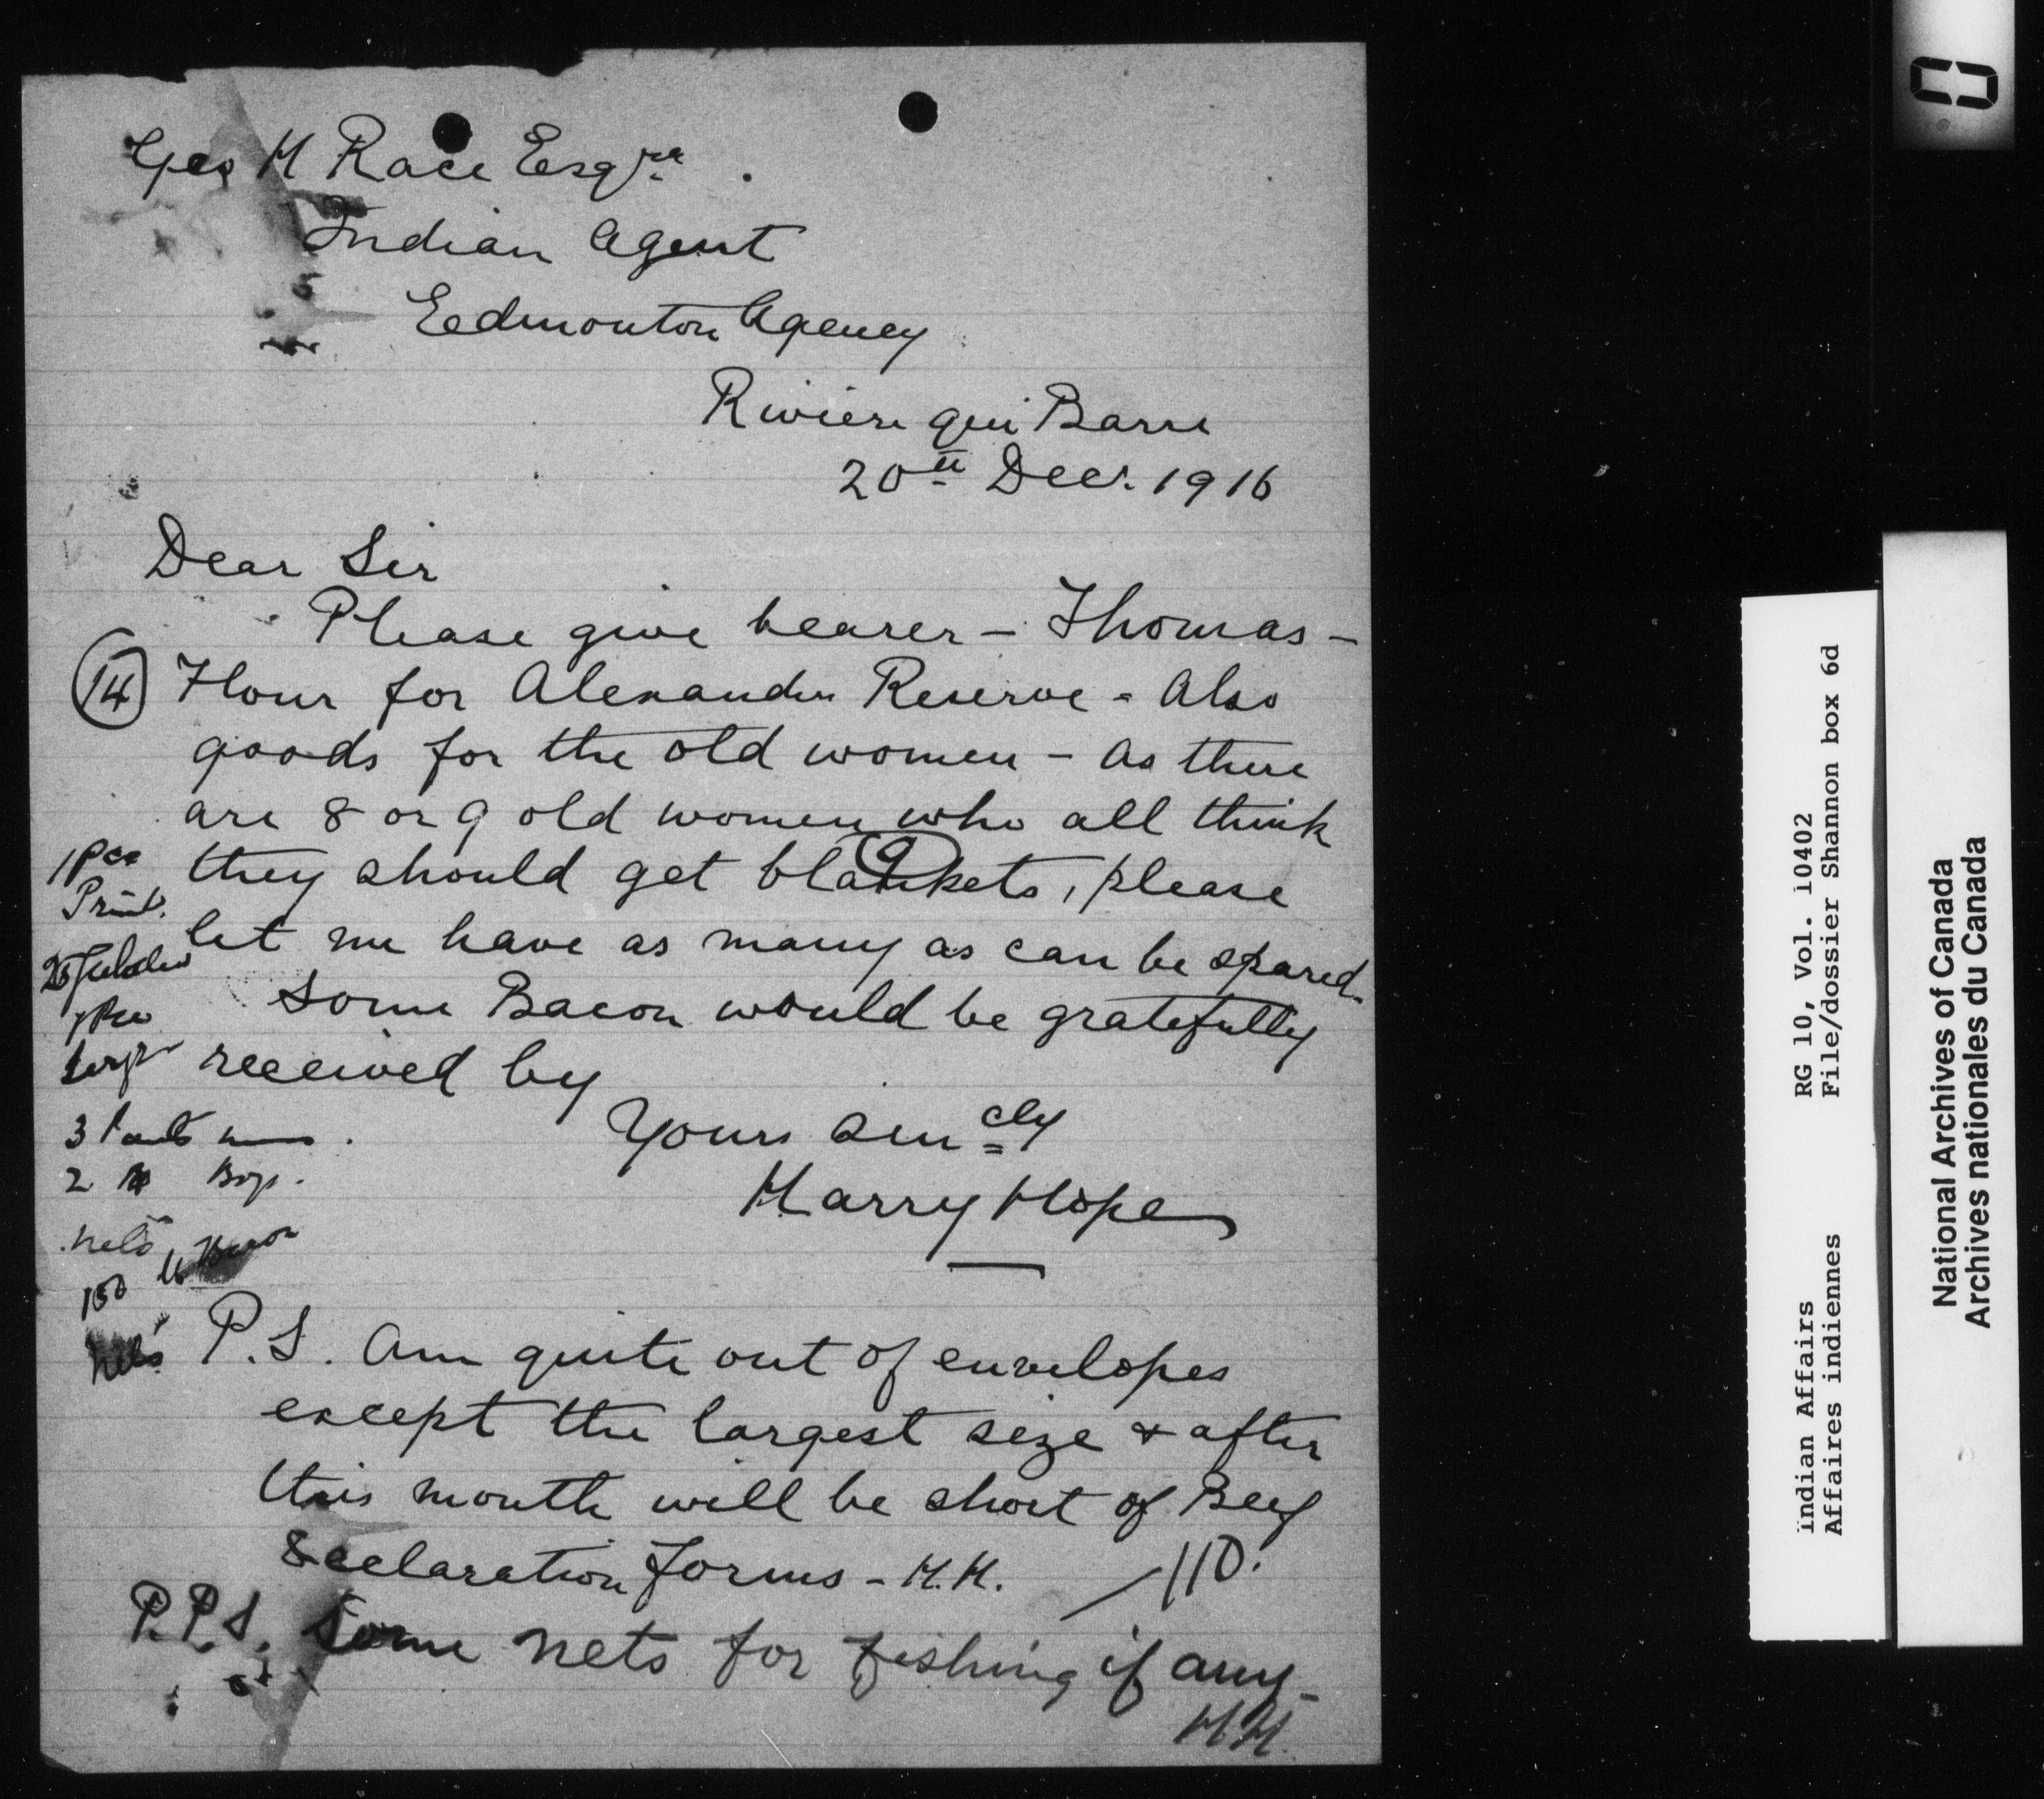 Geo H Race Esqre.
Indian Agent
Edmonton Agency
Riviere qui Barre
20th Decr. 1916
Dear Sir
Please give bearer - Thomas -
(14) Flour for Alexander Reserve - Also
goods for the old women - As there
are 8 or 9 old women who all think
they should get blankets, please
9
let me have as many as can be spared.
Some Bacon would be gratefully
received by
Yours Sincly
Harry Hope
1 pce
Print.
1 Pce
Serge
3
2 Boys.
Nets
150 lb Bacon
Nets
P.S. Am quite out of envelopes
except the largest size & after
this month will be short of Beef
declaration forms - H.H. 110.
P.P.S. Some nets for fishing if any -
H.H.
Indian Affairs RG 10, Vol. 10402
Affaires indiennes File/dossier Shannon box 6d
National Archives of Canada
Archives nationales du Canada